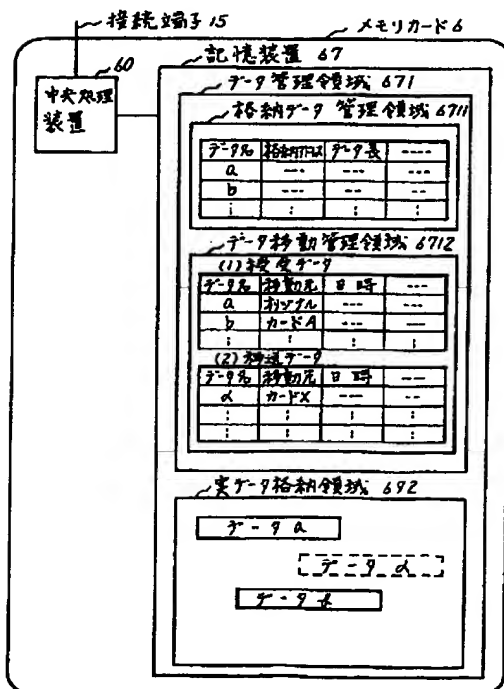 接続端子 15
メモリカード 6
60
中央処理
装置
記憶装置 67
データ管理領域 671
格納データ 管理領域 6711
データ名 格納アドレス データ長 ----
a --- --- ---
b --- -- --
: : : :
データ移動管理領域 6712
(1) 授受データ
データ名 移動元 日時 ---
a オリジナル --- ---
b カードA --- ---
: : : :
(2) 移送データ
データ名 移動先 日時 --
α カードX --- --
: : : :
: : : :
実データ格納領域 692
データ a
データ α
データ b